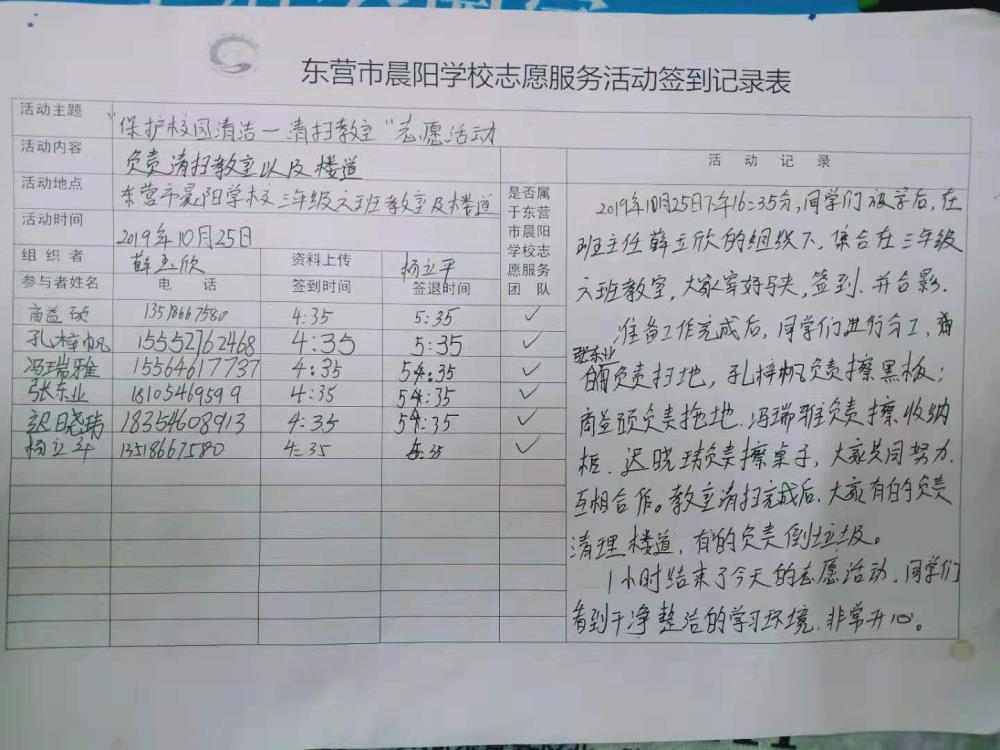 东营市晨阳学校志愿服务活动签到记录表
活动主题 "保护校园清洁—清扫教室"志愿活动
活动内容 负责清扫教室以及楼道
活动地点 东营市晨阳学校三年级六班教室及楼道
活动时间 2019年10月25日
组织者 薛立欣 资料上传 杨立平
参与者姓名 电话 签到时间 签退时间
是否属
于东营
市晨阳
学校志
愿服务
团队
商益硕 13518667580 4:35 5:35 ✓
孔梓帆 15552762468 4:35 5:35 ✓
冯瑞雅 15564617737 4:35 5:35 ✓
张东业 18105469599 4:35 5:35 ✓
迟晓瑃 18354608913 4:35 5:35 ✓
杨立平 13518667580 4:35 5:35 ✓
活动记录
2019年10月25日下午16:35分,同学们放学后,在
班主任薛立欣的组织下,集合在三年级
六班教室,大家穿好马夹,签到.并合影.
准备工作完成后,同学们进行分工,
张东业
负责扫地,孔梓帆负责擦黑板;
商益硕负责拖地.冯瑞雅负责擦收纳
柜.迟晓瑃负责擦桌子,大家共同努力.
互相合作。教室清扫完成后.大家有的负责
清理楼道,有的负责倒垃圾。
1小时结束了今天的志愿活动.同学们
看到干净整洁的学习环境.非常开心。